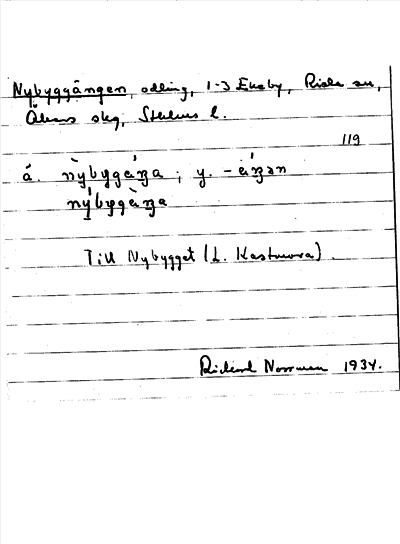 Nybyggängen, odling, 1-3 Ekeby, Riala sn,
Åkers skg, Sthlms l.
119
å. nỳbyggä́ŋa ; y. -ä́ŋən
ný̀byggä̀ŋa
Till Nybygget (L. Kasta)
Rickard Norrman 1934.